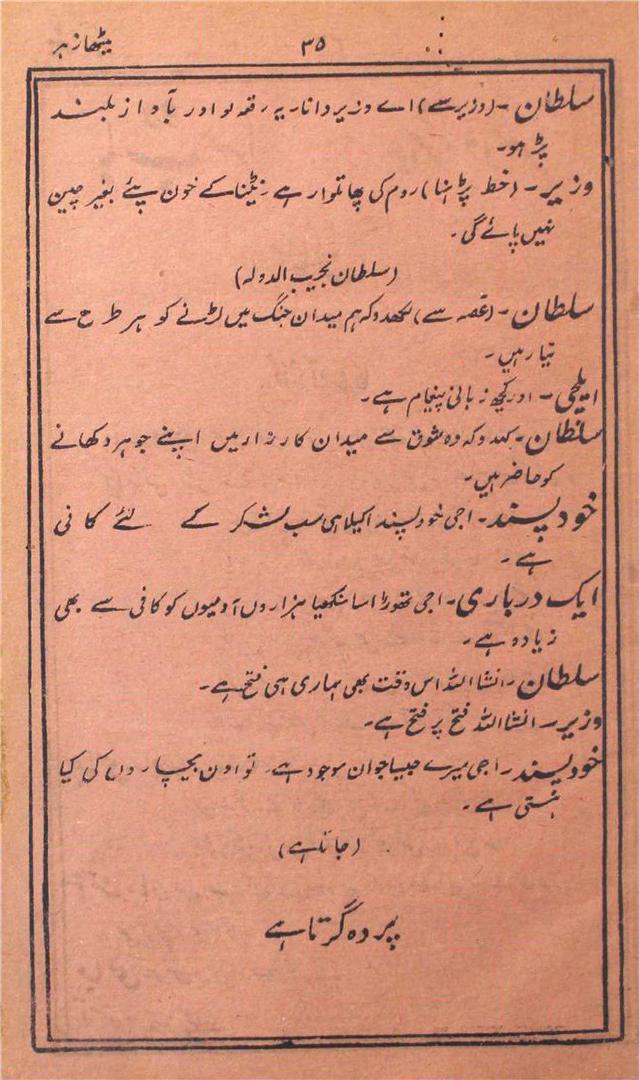 میٹھا زہر
۳۵
سلطان۔ (وزیر سے) اے وزیر دانا یہ رقعہ لو اور بآواز بلند
پڑہو۔
وزیر۔ (خط پڑہنا) روم کی پیاسی تلوار ہے زٹینا کے خون پئے بغیر چین
نہیں پائے گی۔
(سلطان نجیب الدولہ)
سلطان۔ (غصہ سے) لکھدو کہ ہم میدان جنگ میں لڑنے کو ہر طرح سے
تیار ہیں۔
ایلچی۔ اور کچھ زبانی پیغام ہے۔
سلطان۔ کہدو کہ وہ شوق سے میدان کارزار میں اپنے جوہر دکھانے
کو حاضر ہیں۔
خود پسند۔ اجی خود پسند اکیلا ہی سب لشکر کے لئے کافی
ہے۔
ایک درباری۔ اجی تھوڑا سا سنکھیا ہزاروں آدمیوں کو کافی سے بھی
زیادہ ہے۔
سلطان۔ انشا اللہ اس وقت بھی ہماری ہی فتح ہے۔
وزیر۔ انشا اللہ فتح پر فتح ہے۔
خود پسند۔ اجی میرے جیسا جوان موجود ہے۔ تو اون بیچاروں کی کیا
ہستی ہے۔
(جاتا ہے)
پردہ گرتا ہے